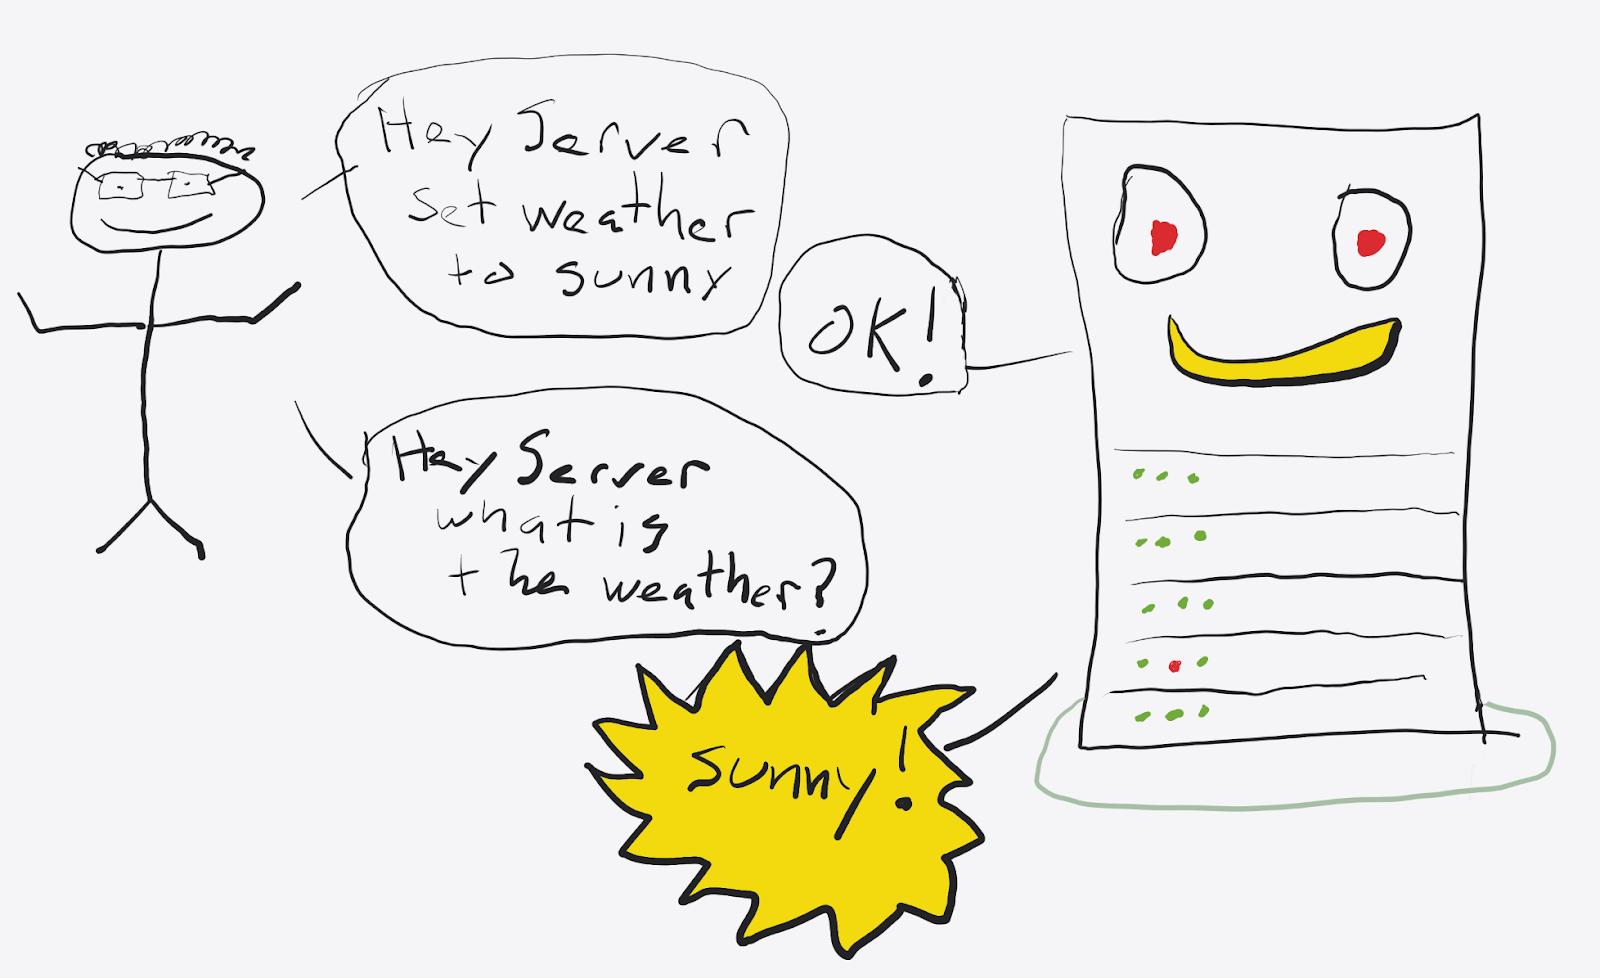 Hey Server
set weather
to sunny
OK!
Hey Server
what is
the weather?
sunny!